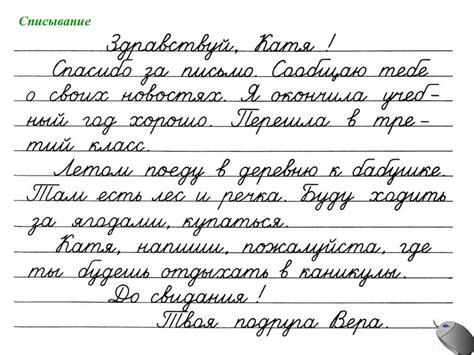 Списывание
Здравствуй, Катя !
Спасибо за письмо. Сообщаю тебе
о своих новостях. Я окончила учеб-
ный год хорошо. Перешла в тре-
тий класс.
Летом поеду в деревню к бабушке.
Там есть лес и речка. Буду ходить
за ягодами, купаться.
Катя, напиши, пожалуйста, где
ты будешь отдыхать в каникулы.
До свидания !
Твоя подруга Вера.